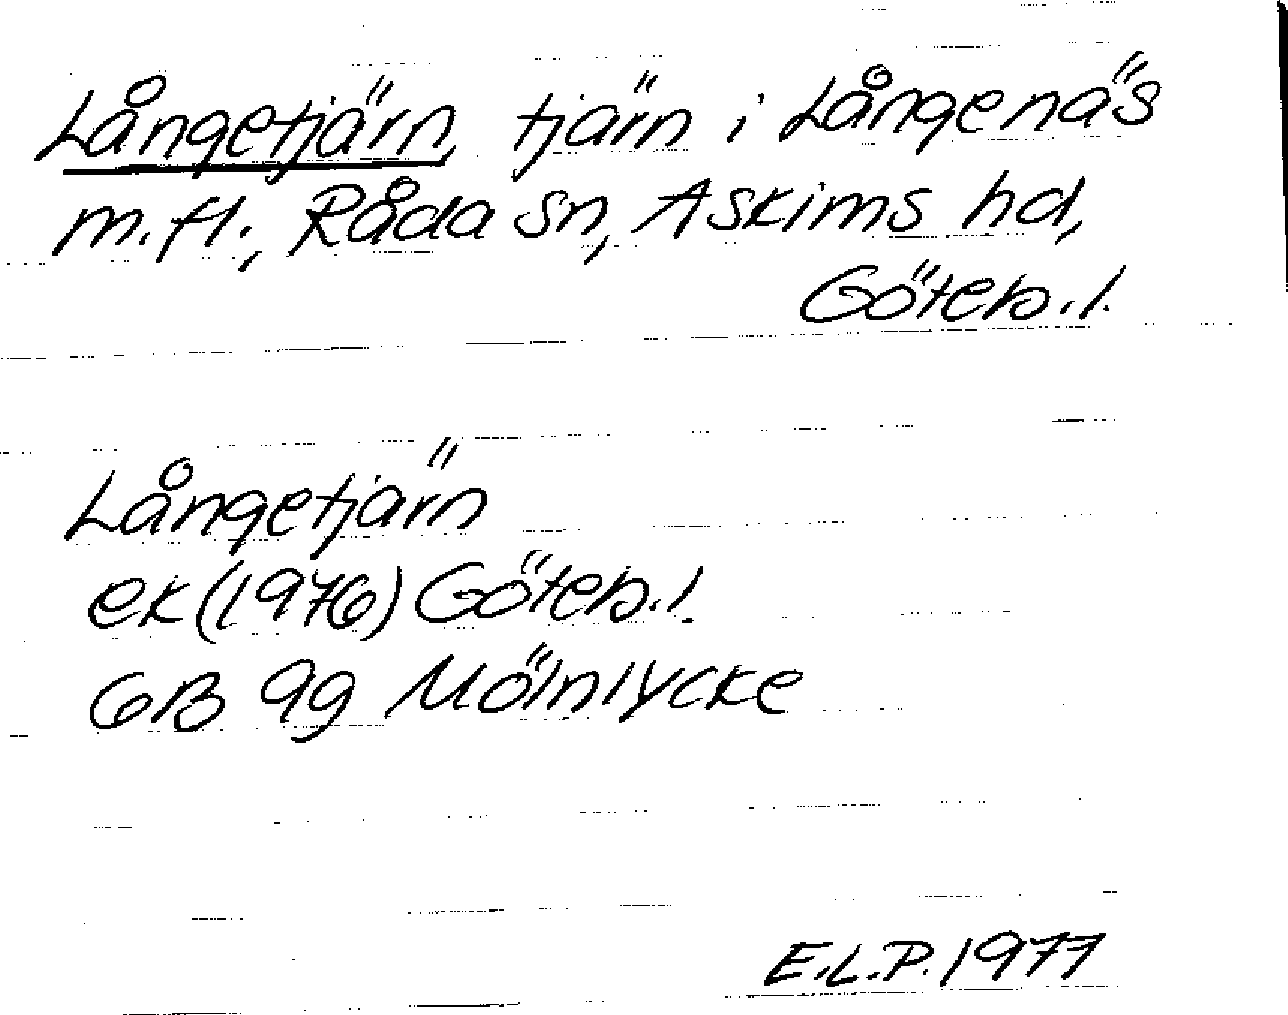 Långetjärn, tjärn i Långenäs
m.fl., Råda sn, Askims hd,
Göteb.l.
Långetjärn
ek (1976) Göteb.l.
GB 9g Mölnlycke
E.L.P. 1977